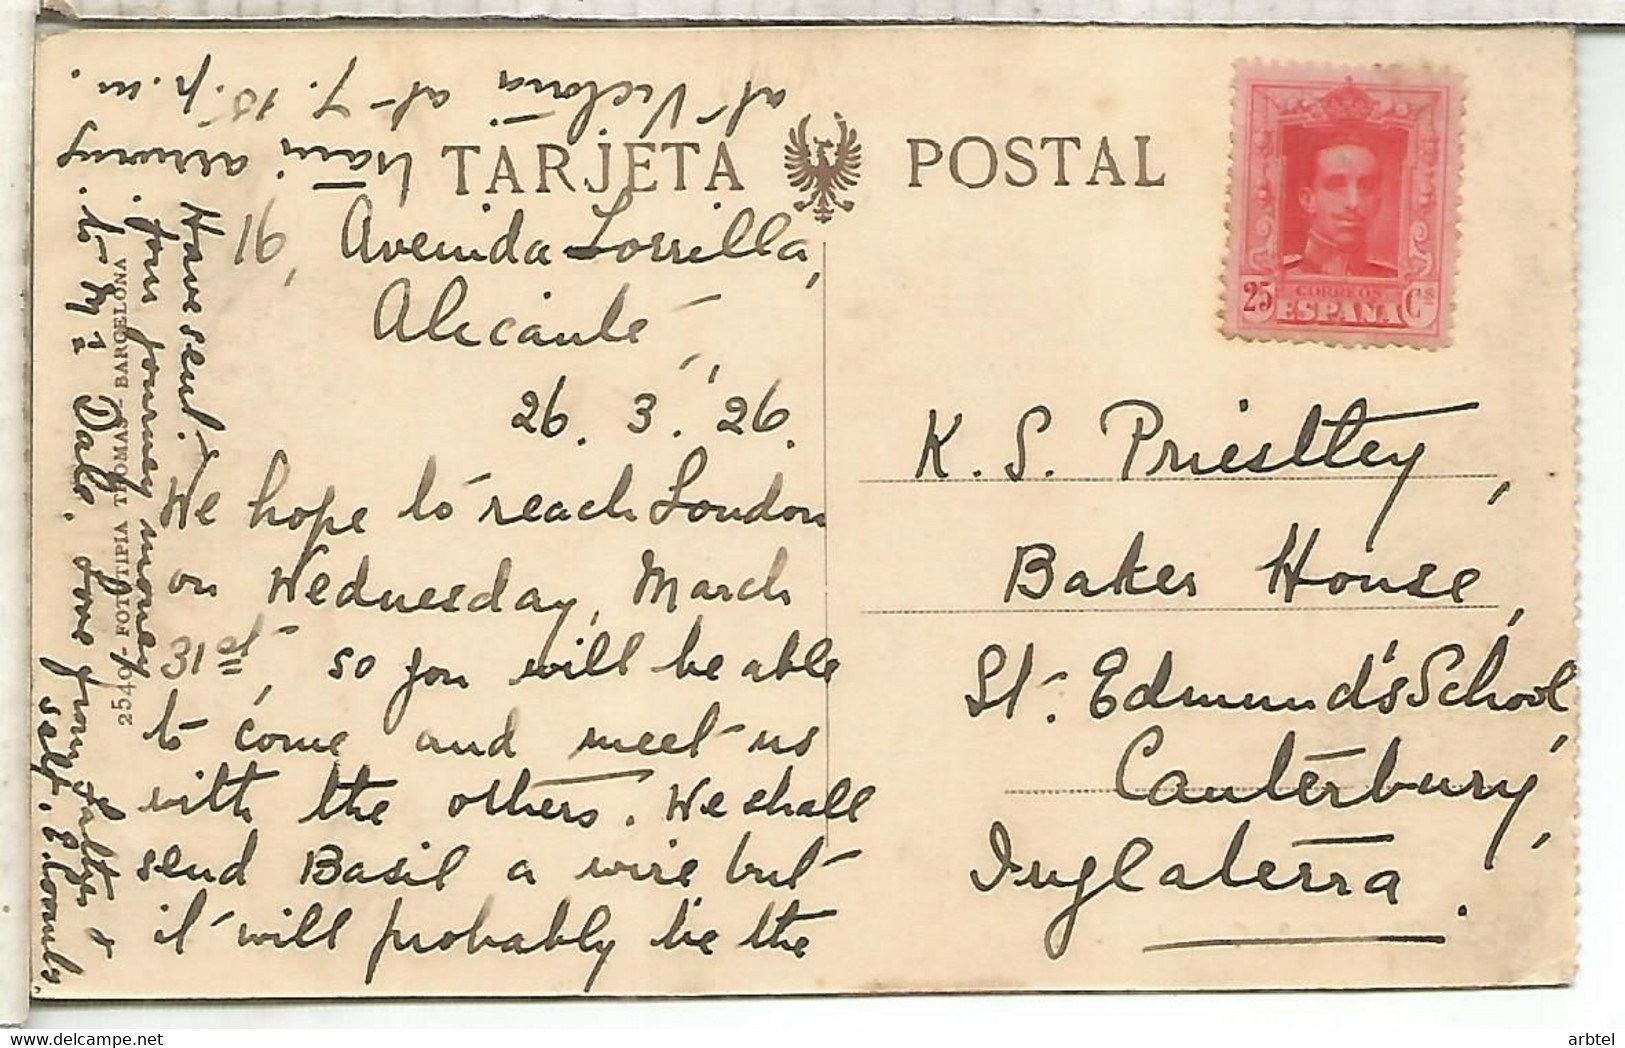 TARJETA POSTAL
16, Avenida Zorrilla,
Alicante,
26. 3. '26.
We hope to reach London
on Wednesday, March
31st, so you will be able
to come and meet us
with the others. We shall
send Basil a wire but
it will probably be the
train arriving
at Victoria at 7.15 p.m.
Have sent
your journey money
to Mr Dale. Love from Father &
self. E. Coombs.
2540 - FOTOTIPIA THOMAS - BARCELONA
25 CORREOS Cts
ESPAÑA
K. S. Priestley,
Baker House,
St. Edmund's School,
Canterbury,
Inglaterra.
arbtel